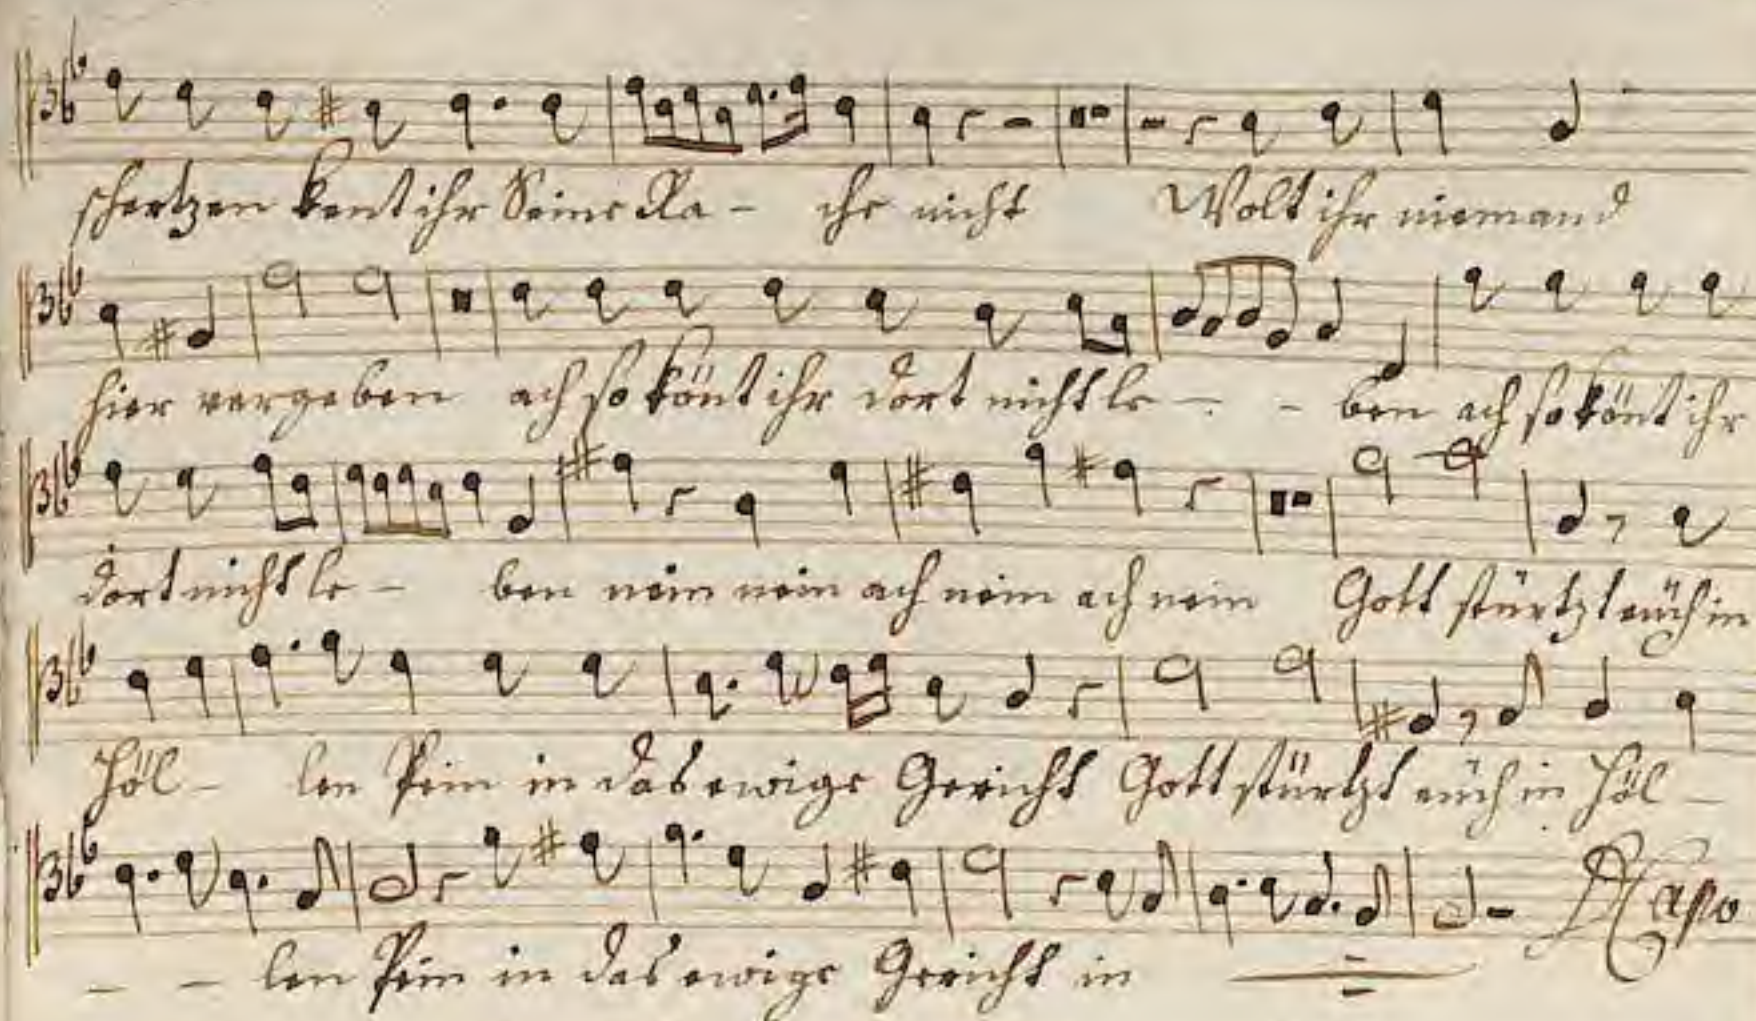 schertzen kent ihr Seine Ra - che nicht Wolt ihr niemand
hier vergeben ach so könt ihr dort nicht le - - ben ach so könt ihr
dort nicht le - ben nein nein ach nein ach nein Gott stürtzt euch in
Höl - len Pein in das ewige Gericht Gott stürtzt euch in Höl -
- - len Pein in das ewige Gericht in
DCapo